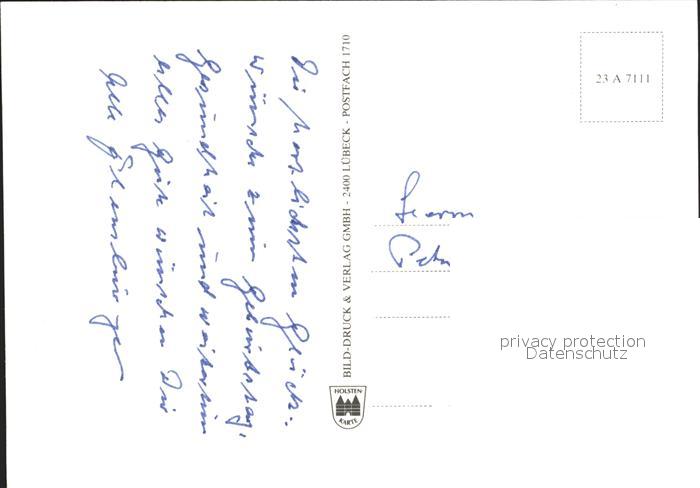 Die herzlichsten Glück-
wünsche zum Geburtstag,
Gesundheit und weiterhin
alles Gute wünschen Dir
Alle
BILD-DRUCK & VERLAG GMBH - 2400 LÜBECK - POSTFACH 1710
HOLSTEN-
KARTE
23 A 7111
Herrn
Peter
privacy protection
Datenschutz